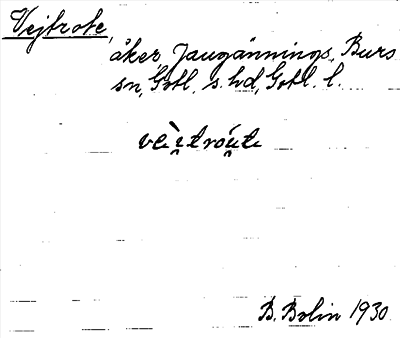 Vejtrote,
åker, Jaugännings, Burs
sn, Gotl. s. hd, Gotl. l.
vèi̯tróu̯tɛ
B. Bolin 1930